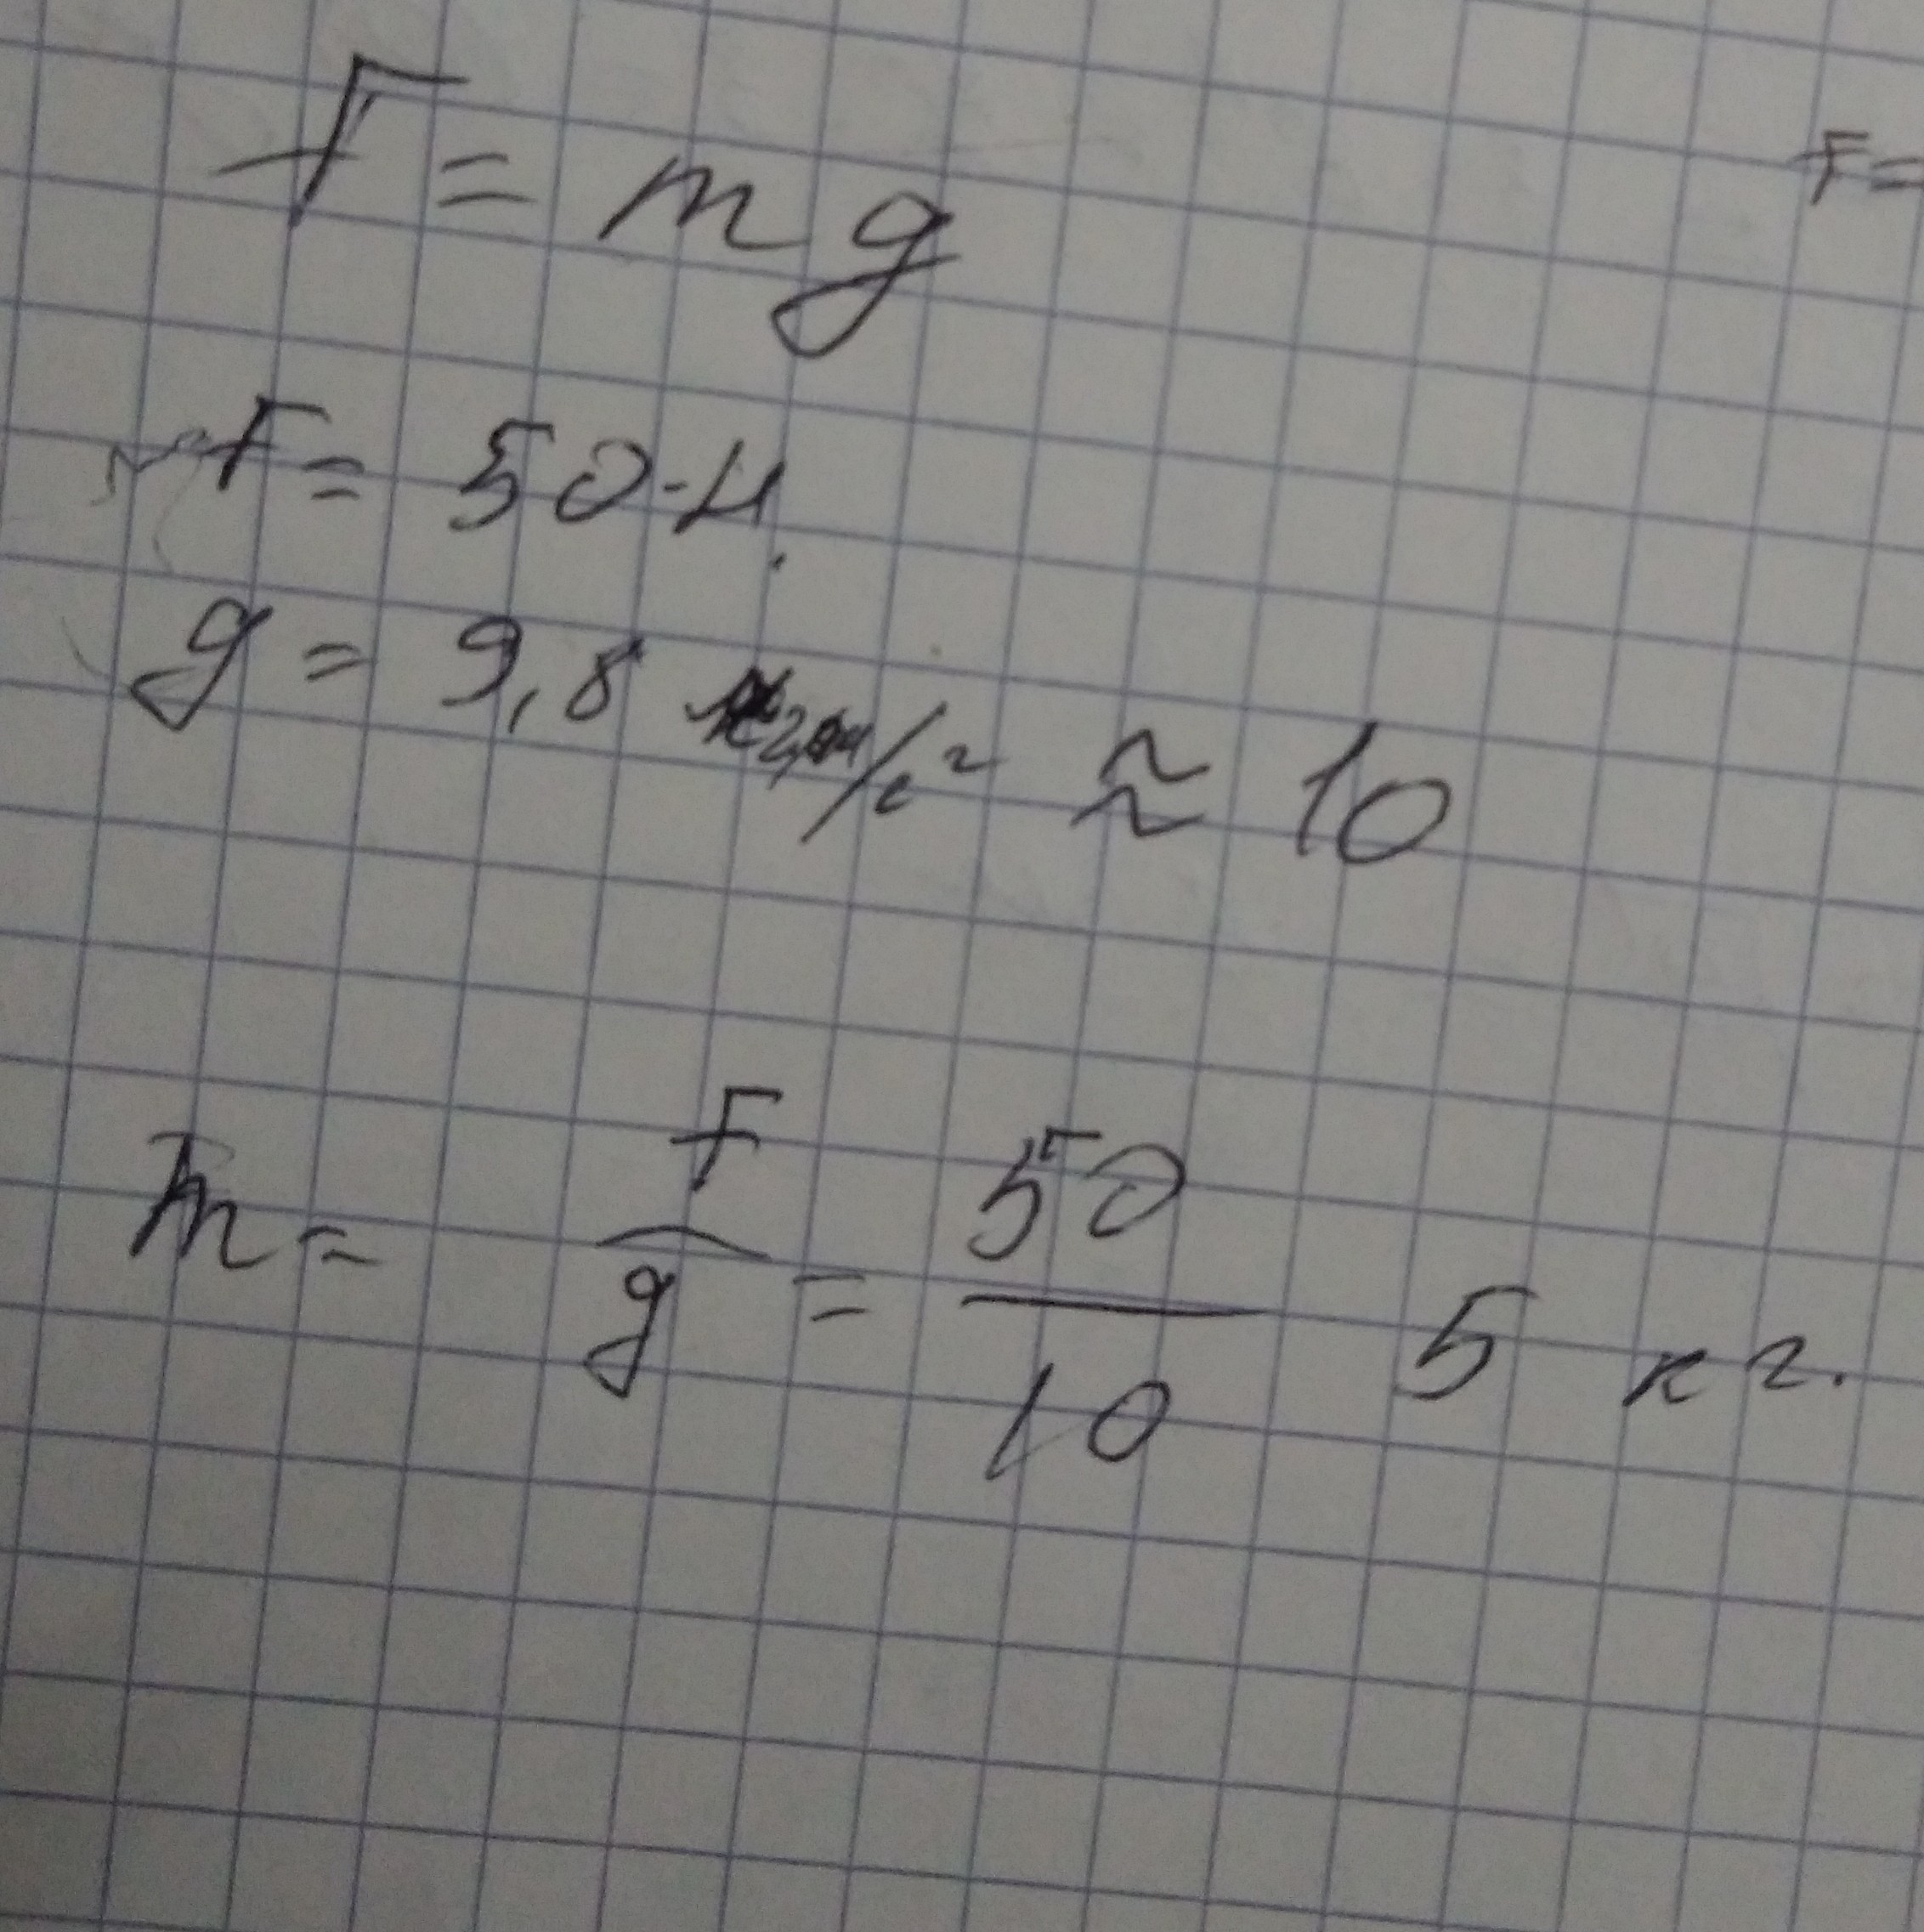 F = mg
F =
F = 50 Н.
g = 9,8 м/с² ≈ 10
m = F/g = 50/10 5 кг.